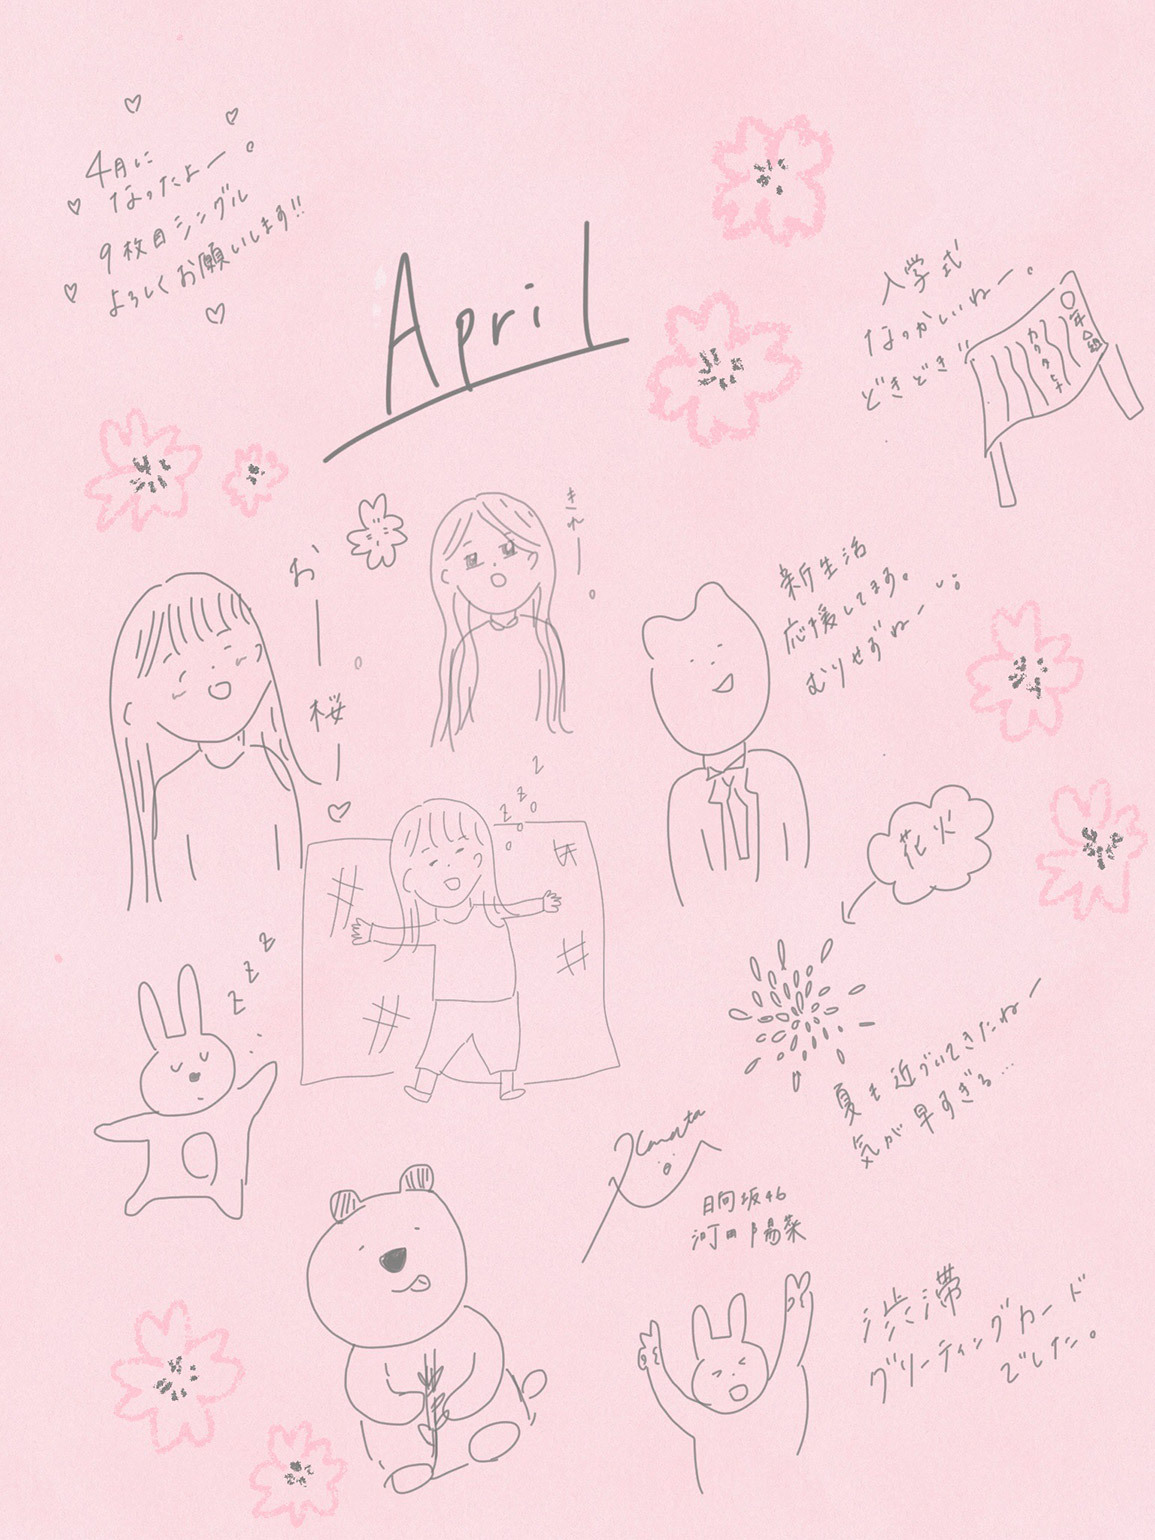 4月に
なったよー。
9枚目シングル
よろしくお願いします!!
April
入学式
なつかしいねー。
どきどき!!
〇年〇組
きれー。
おー。
桜ー
新生活
応援してます。
むりせずねー
花火
zzz
zzz
夏も近づいてきたねー
気が早すぎる...
Kanata
日向坂46
河田陽菜
渋滞
グリーティングカード
でした。